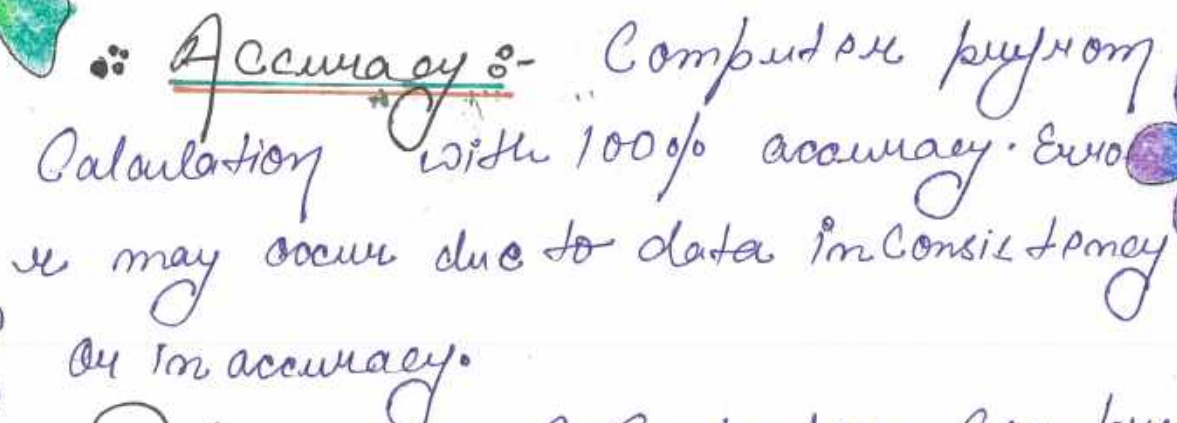 Accuracy :- Computer perform
Calculation with 100% accuracy. Erro
r may occur due to data inconsistency
or in accuracy.